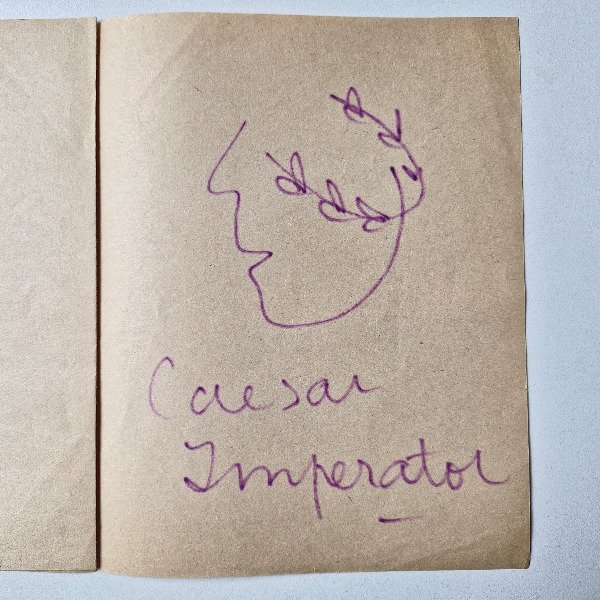 Caesar
Imperator